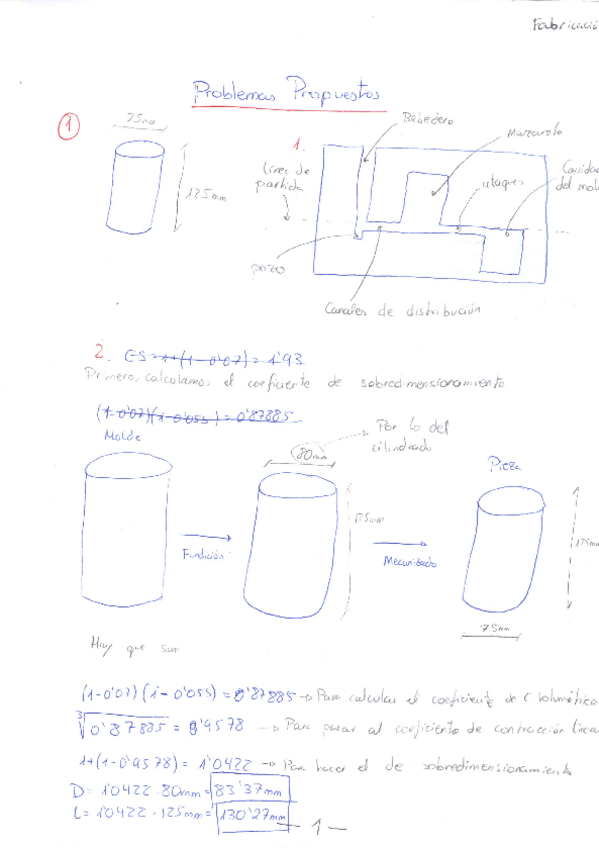 Fabricació
Problemas Propuestos
1
75mm
125mm
1.
Bebedero
Mazarota
línea de
partida
ataques
Cavida
del mol
pozo
Canales de distribución
2. CS = 1+(1-0'07) = 1'93
Primero, calculamos el coeficiente de sobredimensionamiento
(1-0'07)(1-0'055) = 0'87885
Molde
80mm
Por lo del
cilindrado
Pieza
125mm
Fundición
Mecanizado
125mm
75mm
Hay que sum
(1-0'07)(1-0'055) = 0'87885 → Para calcular el coeficiente de C Volumétrica
∛0'87885 = 0'9578 → Para pasar al coeficiente de contracción linea
1+(1-0'9578) = 1'0422 → Para hacer el de sobredimensionamiento
D = 1'0422 · 80mm = 83'37mm
L = 1'0422 · 125mm = 130'27mm
— 1 —